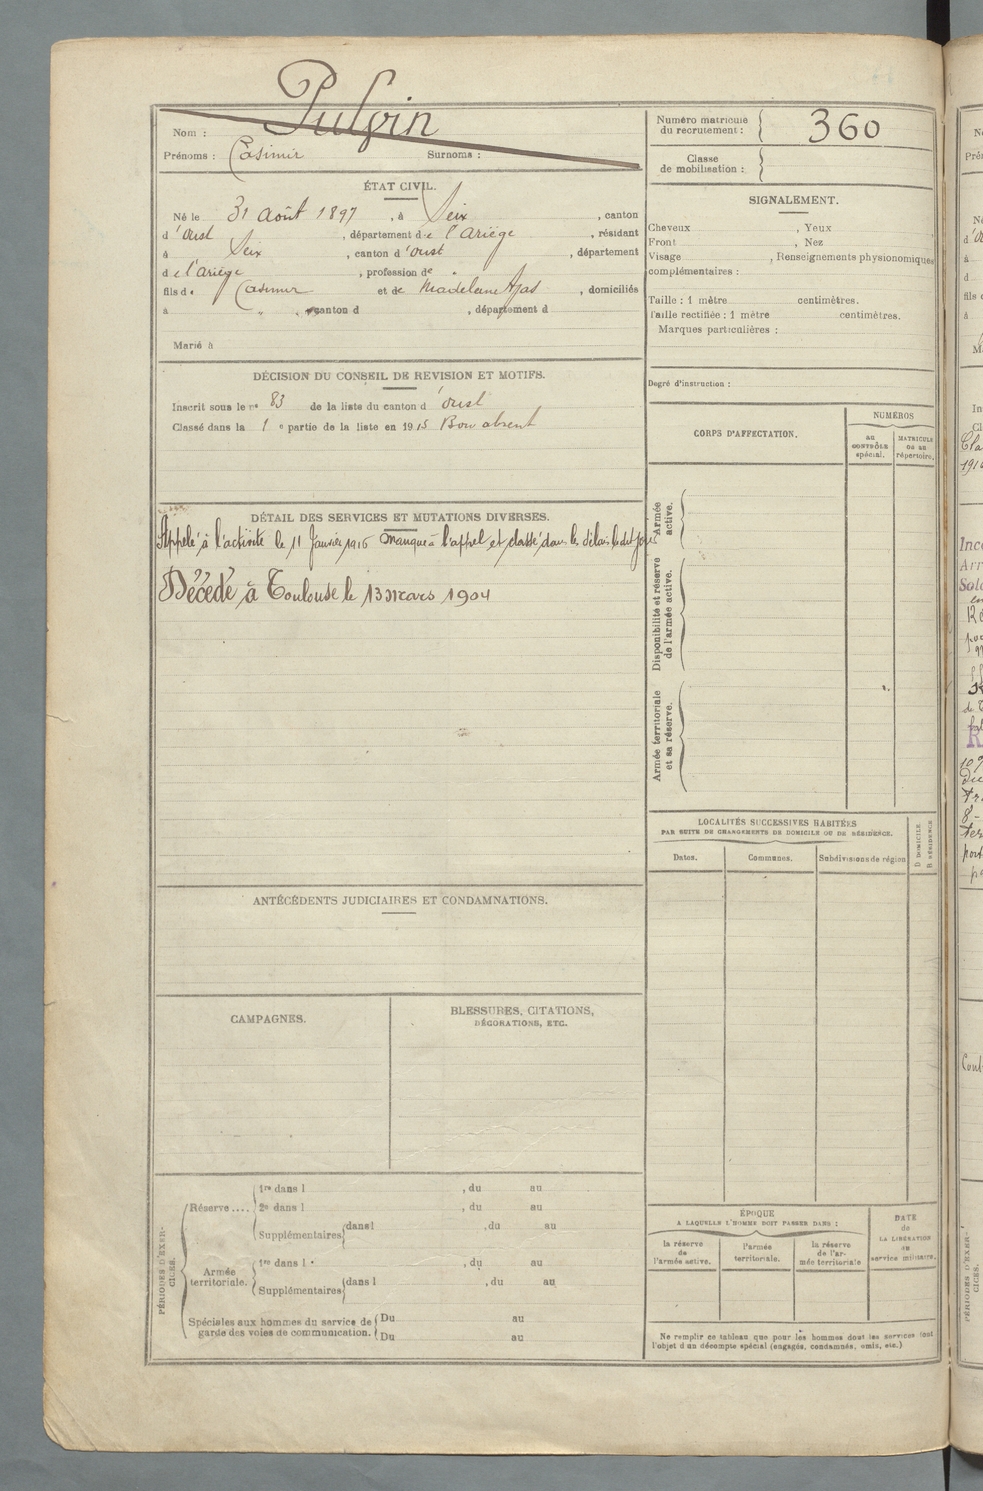 Nom : Pulpin
Prénoms : Casimir Surnoms :
Numéro matricule du recrutement : 360
Classe de mobilisation :
ÉTAT CIVIL.
Né le 31 août 1897, à Seix, canton
d'Oust, département de l'Ariège, résidant
à Seix, canton d'Oust, département
de l'Ariège, profession de
fils de Casimir et de Madeleine Ajas, domiciliés
à " ", canton d , département d
Marié à
SIGNALEMENT.
Cheveux , Yeux ,
Front , Nez
Visage , Renseignements physionomiques
complémentaires :
Taille : 1 mètre centimètres.
Taille rectifiée : 1 mètre centimètres.
Marques particulières :
Degré d'instruction :
DÉCISION DU CONSEIL DE REVISION ET MOTIFS.
Inscrit sous le n° 83 de la liste du canton d'Oust
Classé dans la 1e partie de la liste en 1915 Bon absent
DÉTAIL DES SERVICES ET MUTATIONS DIVERSES.
Appelé à l'activité le 11 Janvier 1916 manque à l'appel et classé dans les délais
Décédé à Toulouse le 13 mars 1904
CORPS D'AFFECTATION.
NUMÉROS
au CONTRÔLE spécial.
MATRICULE ou au répertoire.
Armée active.
Disponibilité et réserve de l'armée active.
Armée territoriale et sa réserve.
LOCALITÉS SUCCESSIVES HABITÉES
PAR SUITE DE CHANGEMENTS DE DOMICILE OU DE RÉSIDENCE.
Dates.
Communes.
Subdivisions de région
D. DOMICILE
R. RÉSIDENCE
ANTÉCÉDENTS JUDICIAIRES ET CONDAMNATIONS.
CAMPAGNES.
BLESSURES, CITATIONS,
DÉCORATIONS, ETC.
PÉRIODES D'EXERCICES.
Réserve....
1re dans l , du au
2e dans l , du au
Supplémentaires dans l , du au
Armée territoriale.
1re dans l , du au
Supplémentaires dans l , du au
Spéciales aux hommes du service de garde des voies de communication.
Du au
Du au
ÉPOQUE
A LAQUELLE L'HOMME DOIT PASSER DANS :
la réserve de l'armée active.
l'armée territoriale.
la réserve de l'armée territoriale
DATE de LA LIBÉRATION du service militaire.
Ne remplir ce tableau que pour les hommes dont les services font
l'objet d'un décompte spécial (engagés, condamnés, omis, etc.)